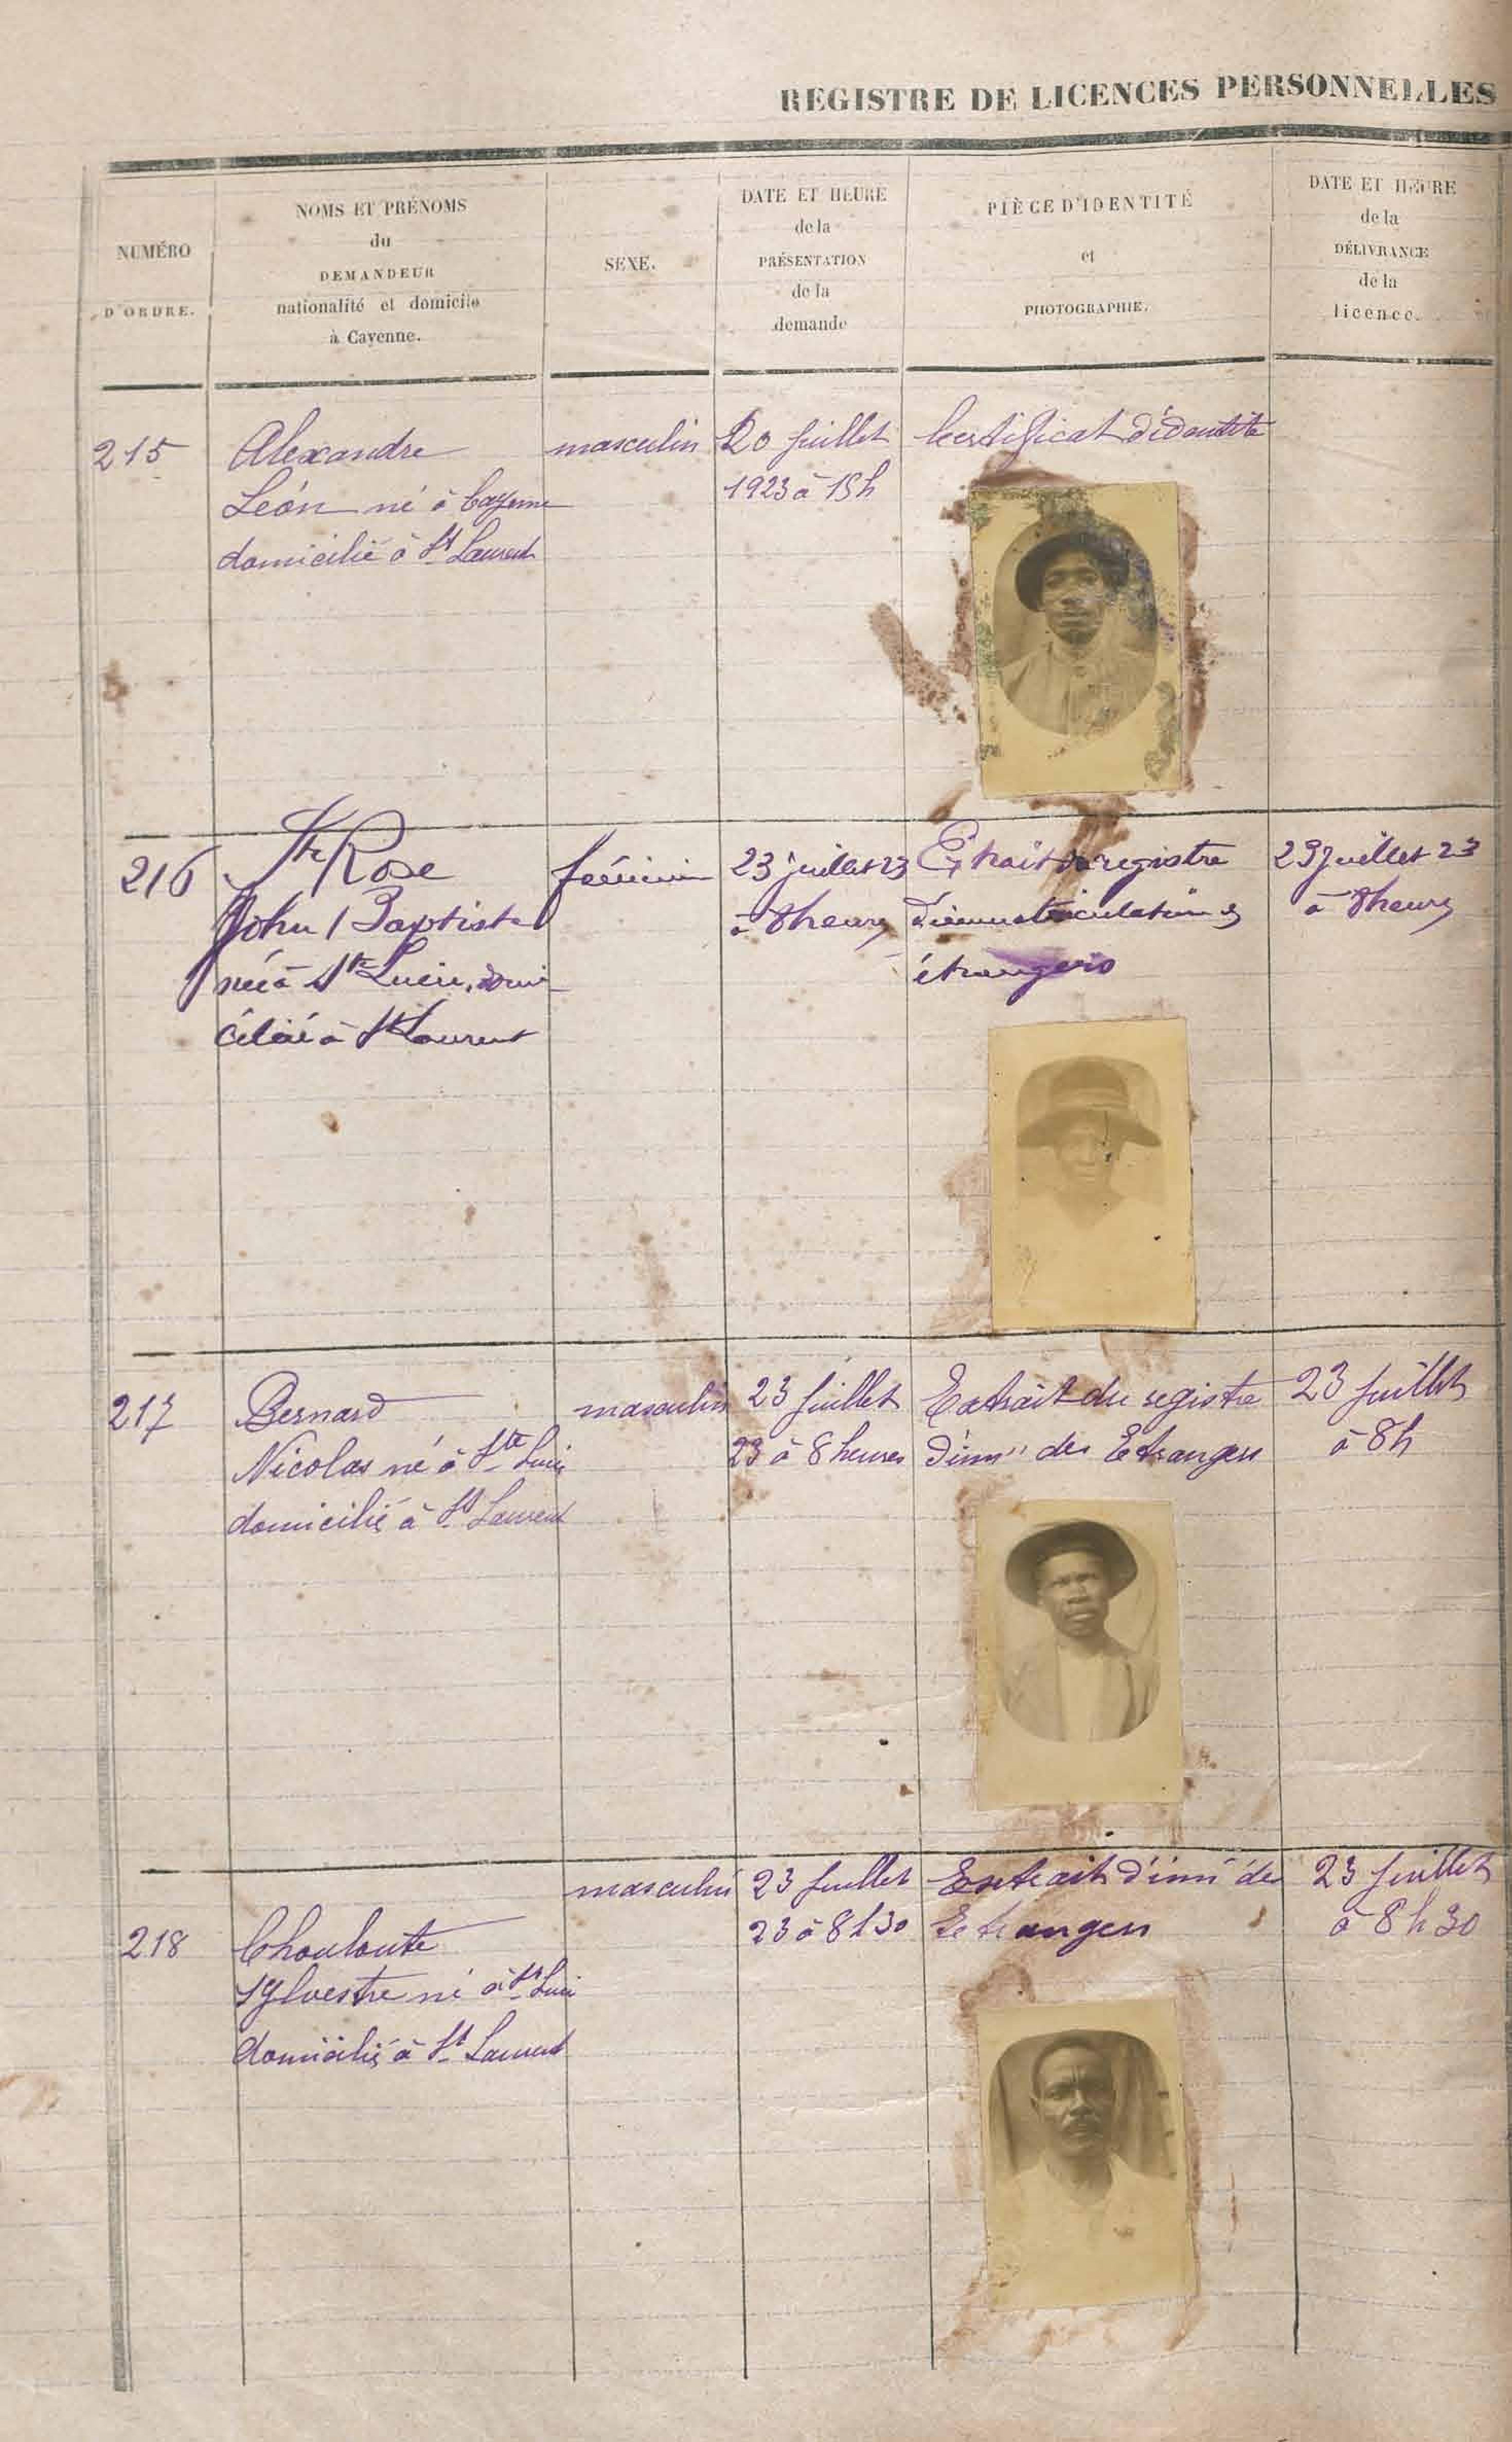 REGISTRE DE LICENCES PERSONNELLES
NUMÉRO
D'ORDRE.
NOMS ET PRÉNOMS
du
DEMANDEUR
nationalité et domicile
à Cayenne.
SEXE.
DATE ET HEURE
de la
PRÉSENTATION
de la
demande
PIÈCE D'IDENTITÉ
et
PHOTOGRAPHIE.
DATE ET HEURE
de la
DÉLIVRANCE
de la
licence.
215
Alexandre
Léon né à Cayenne
domicilié à St Laurent
masculin
20 juillet
1923 à 15h
Certificat d'identité
216
Ste Rose
John Baptiste
née à Ste Lucie, domi
cilié à St Laurent
féminin
23 juillet 23
à 8 heures
Extrait du registre
d'immatriculation des
étrangers
23 juillet 23
à 8 heures
217
Bernard
Nicolas né à Ste Lucie
domicilié à St Laurent
masculin
23 juillet
23 à 8 heures
Extrait du registre
d'imm" des Etrangers
23 juillet
à 8h
218
Chouloute
Sylvestre né à Ste Lucie
domicilié à St Laurent
masculin
23 juillet
23 à 8h30
Extrait d'imm des
Etrangers
23 juillet
à 8h30